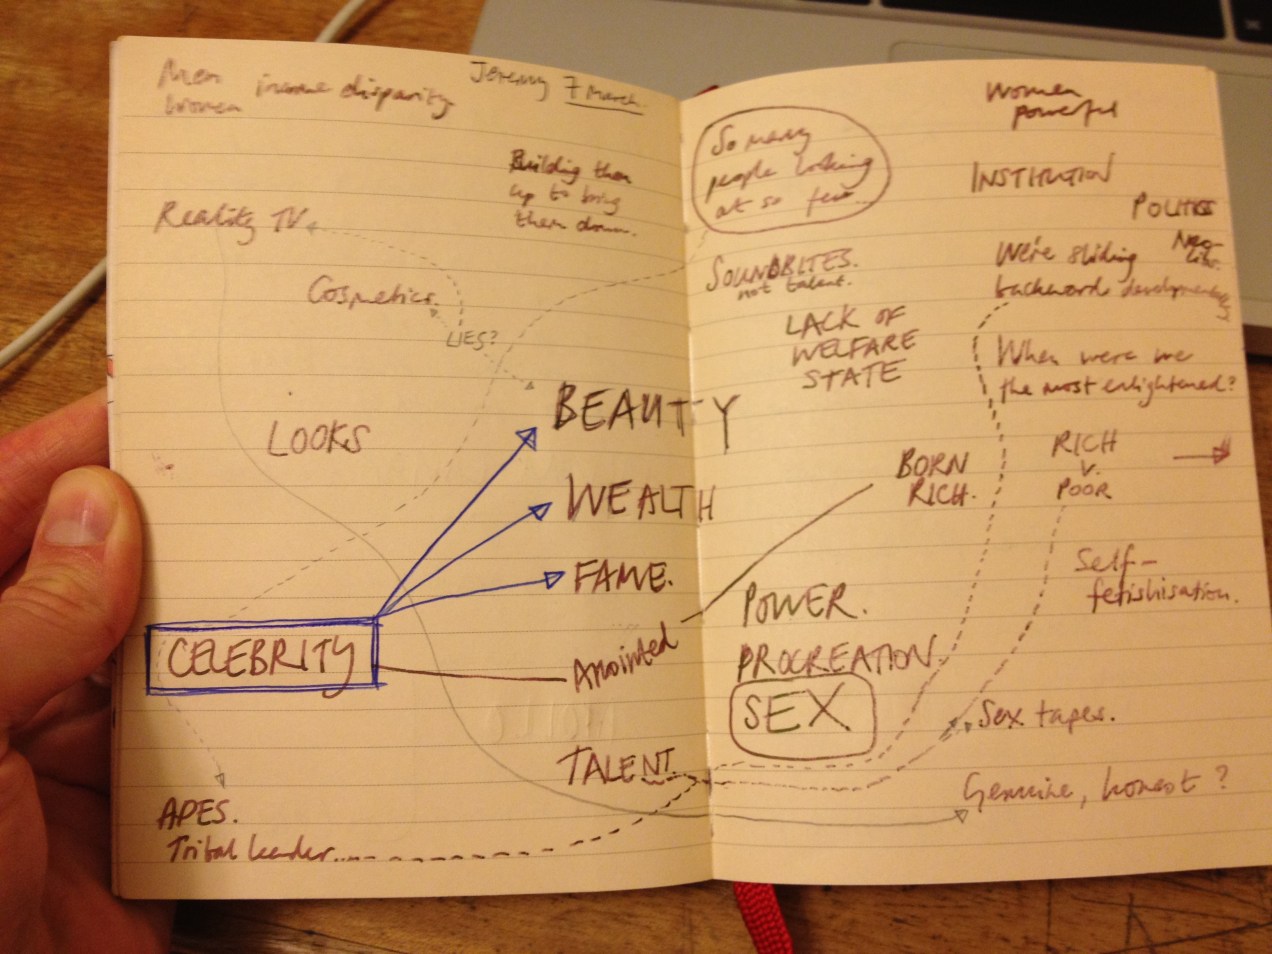 Men
Women
income disparity
Jeremy 7 March.
Building them
up to bring
them down.
Reality TV
Cosmetics.
LIES?
LOOKS
BEAUTY
WEALTH
FAME.
CELEBRITY
Anointed
TALENT.
APES.
Tribal leader...
So many
people looking
at so few...
Women
powerful
INSTITUTION
POLITICS
Neo-
Lib.
SOUNDBITES.
not talent.
We're sliding
backwards developmentally
LACK OF
WELFARE
STATE
When were we
the most enlightened?
BORN
RICH.
RICH
V.
POOR
Self-
fetishisation.
POWER.
PROCREATION.
SEX
Sex tapes.
Genuine, honest?